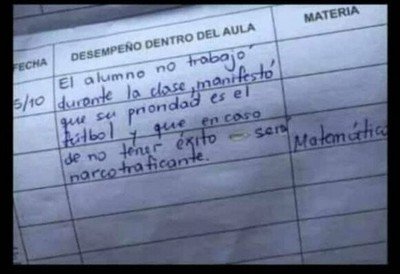 FECHA DESEMPEÑO DENTRO DEL AULA MATERIA
El alumno no trabajó
5/10 durante la clase, manifestó
que su prioridad es el
fútbol y que en caso
de no tener éxito - será Matemática
narcotraficante.